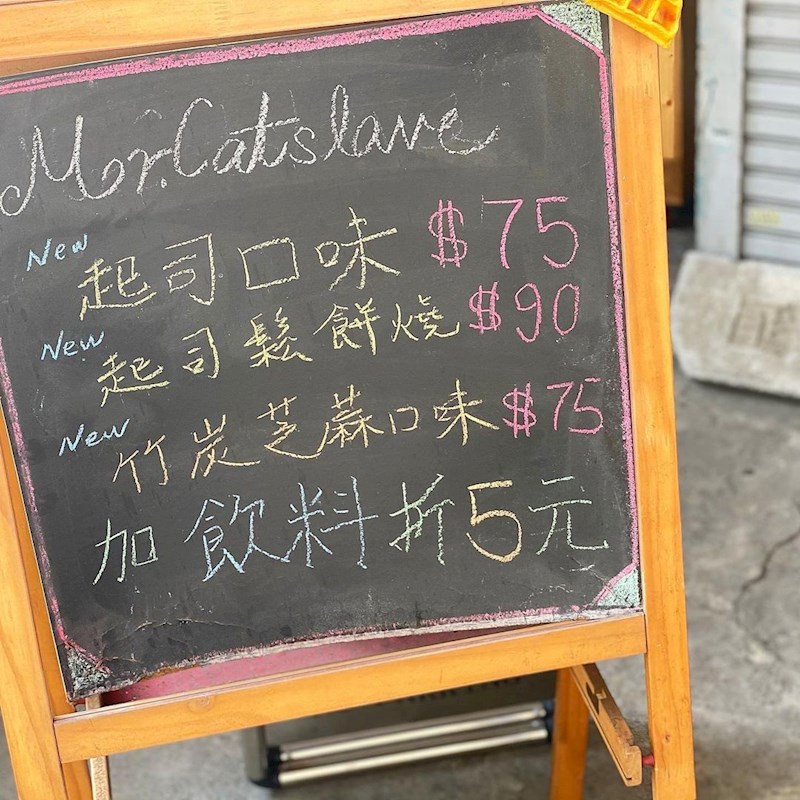 Mr. Catslave
New 起司口味 $75
New 起司鬆餅燒 $90
New 竹炭芝蔴口味 $75
加飲料折5元